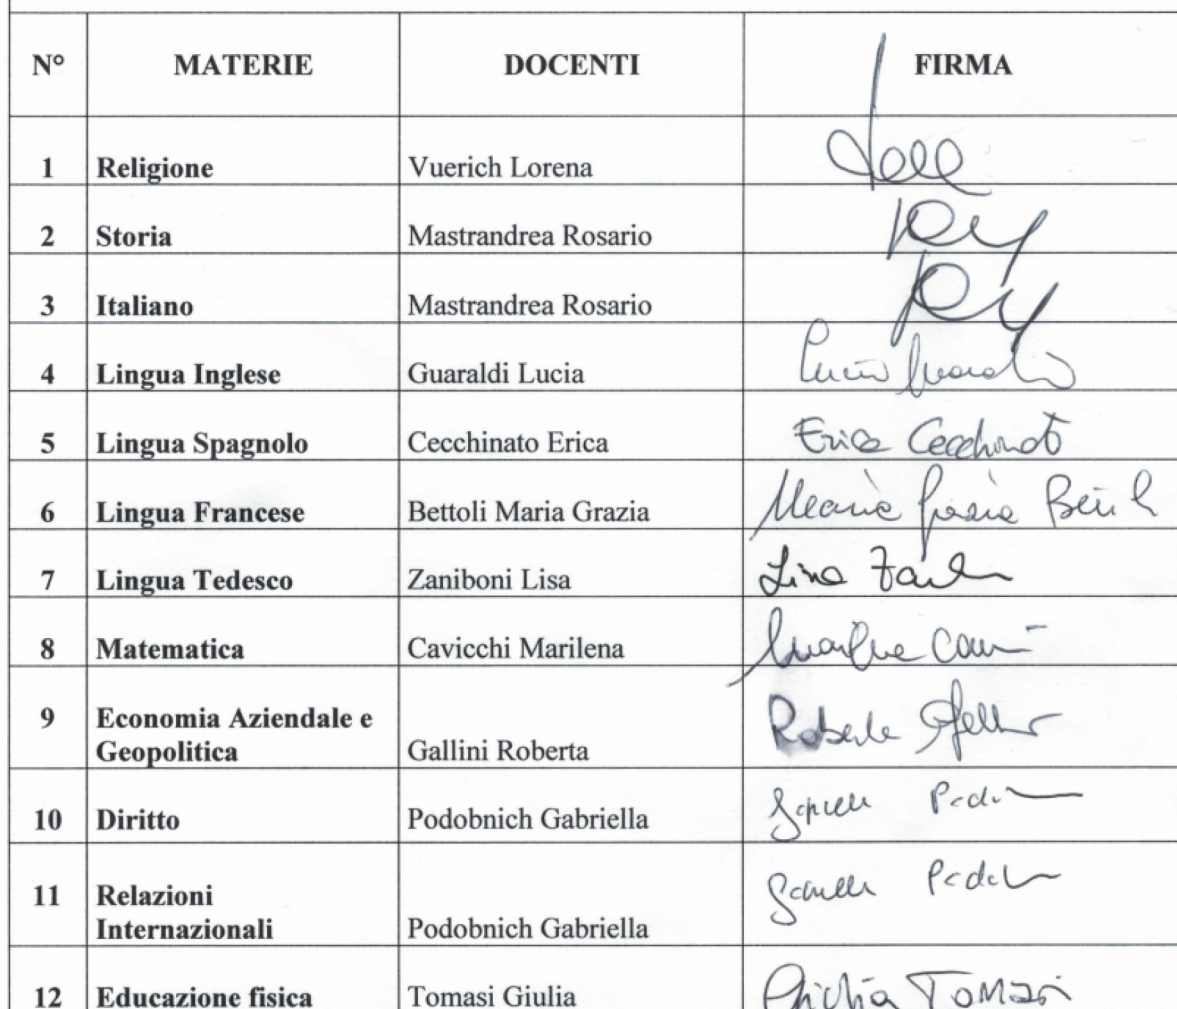 N° MATERIE DOCENTI FIRMA
1 Religione Vuerich Lorena
2 Storia Mastrandrea Rosario
3 Italiano Mastrandrea Rosario
4 Lingua Inglese Guaraldi Lucia
5 Lingua Spagnolo Cecchinato Erica Erica Cecchinato
6 Lingua Francese Bettoli Maria Grazia Maria Grazia
7 Lingua Tedesco Zaniboni Lisa Lisa
8 Matematica Cavicchi Marilena
9 Economia Aziendale e
Geopolitica Gallini Roberta Roberta
10 Diritto Podobnich Gabriella
11 Relazioni
Internazionali Podobnich Gabriella
12 Educazione fisica Tomasi Giulia Giulia Tomasi